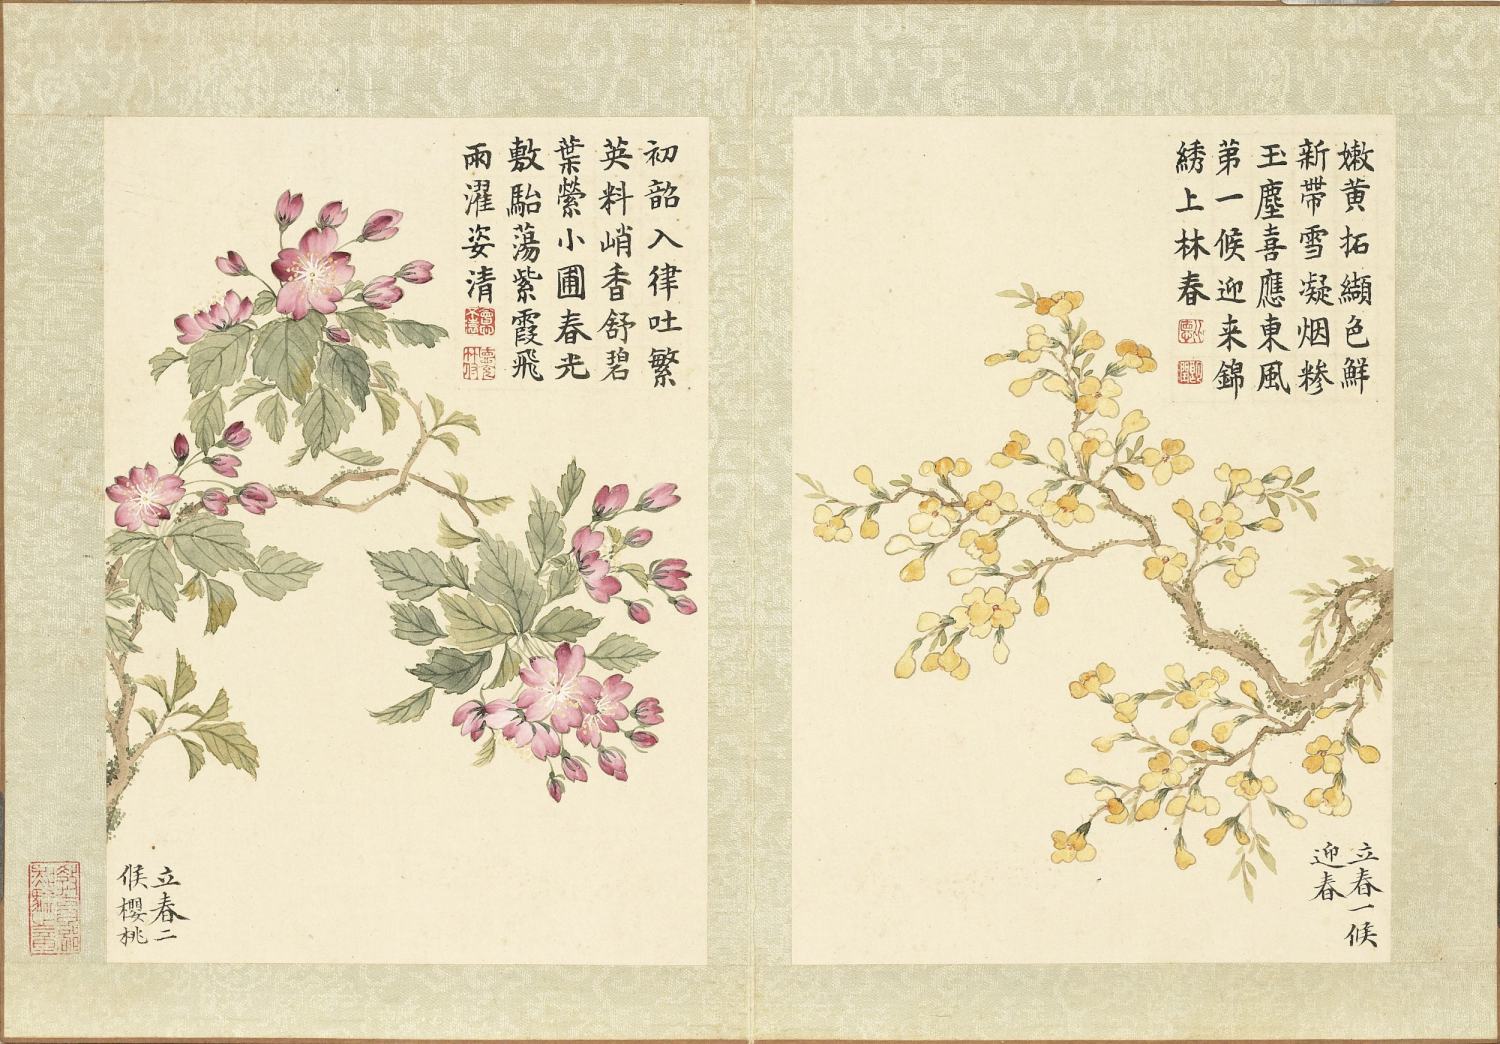 嫩黄拓纈色鮮
新帶雪凝烟糝
玉塵喜應東風
第一候迎来錦
綉上林春
立春一候
迎春
初韶入律吐繁
英料峭香舒碧
葉縈小圃春光
敷駘蕩紫霞飛
雨濯姿清
立春二
候櫻桃